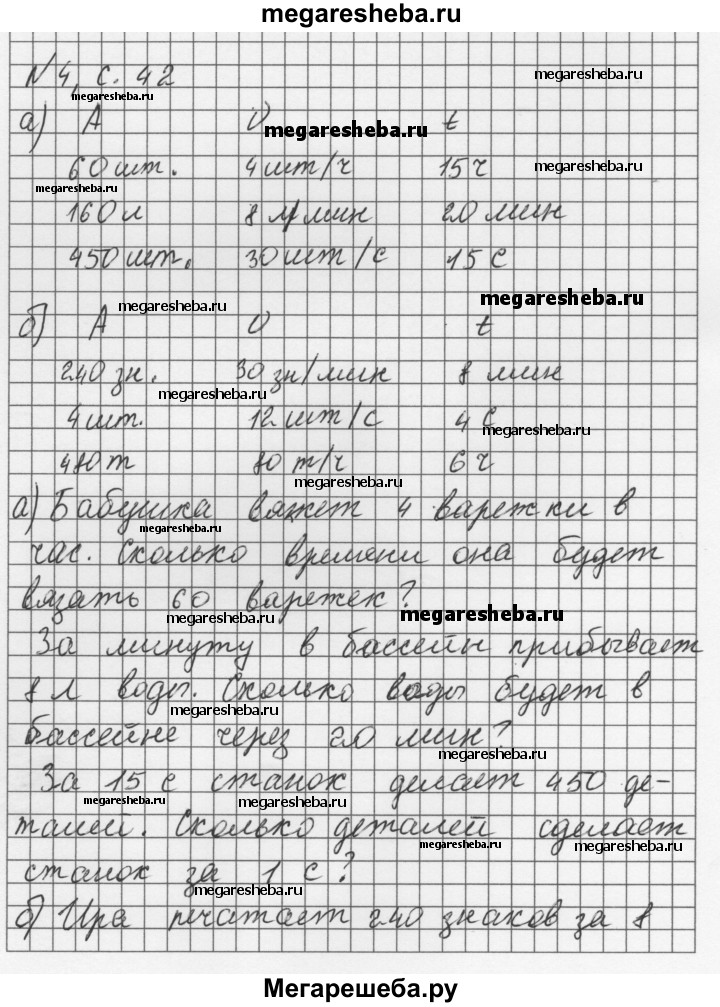 megaresheba.ru
N 4, с. 42
megaresheba.ru
megaresheba.ru
а) A υ t
megaresheba.ru
60 шт. 4 шт/ч 15 ч
megaresheba.ru
megaresheba.ru
160 л 8 л/мин 20 мин
450 шт. 30 шт/с 15 с
megaresheba.ru
megaresheba.ru
б) A υ t
240 зн. 30 зн/мин 8 мин
megaresheba.ru
4 шт. 12 шт/с 4 с
megaresheba.ru
480 т 80 т/ч 6 ч
megaresheba.ru
а) Бабушка вяжет 4 варежки в
megaresheba.ru
час. Сколько времени она будет
вязать 60 варежек?
megaresheba.ru
megaresheba.ru
За минуту в бассейн прибывает
8 л воды. Сколько воды будет в
megaresheba.ru
бассейне через 20 мин?
megaresheba.ru
За 15 с станок делает 450 де-
megaresheba.ru
megaresheba.ru
талей. Сколько деталей сделает
megaresheba.ru
megaresheba.ru
станок за 1 с?
megaresheba.ru
б) Ира печатает 240 знаков за 8
Мегарешеба.ру